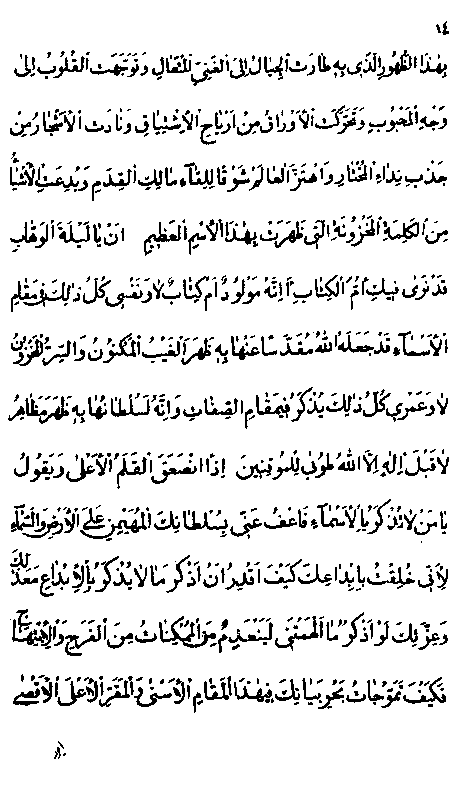 ١٤
بهذا الظهور الّذی به طارت الجبال الی الغنیّ المتعال و توجّهت القلوب الی
وجه المحبوب و تحرّکت الاوراق من اریاح الاشتیاق و نادت الاشجار من
جذب نداء المختار و اهتزّ العالم شوقا للقاء مالک القدم و بدعت الاشیاء
من الکلمة المخزونة الّتی ظهرت بهذا الاسم العظیم ان یا لیلة الوهّاب
قد نری فیک امّ الکتاب أ انّه مولود ام کتاب لا و نفسی کلّ ذلک فی مقام
الاسماء قد جعله الله مقدّسا عنها به ظهر الغیب المکنون و السرّ المخزون
لا و عمری کلّ ذلک یذکر فی مقام الصفات و انّه لسلطانها به ظهر مظاهر
لا قبل اله الّا الله طوبی للموقنین اذا انصعق القلم الاعلی و یقول
یا من لا تذکر بالاسماء فاعف عنّی بسلطانک المهیمن علی الارض و السّماء
لانّی خلقت بابداعک کیف اقدر ان اذکر ما لا یذکر بالابداع مع ذلک
و عزّتک لو اذکر ما الهمتنی لینعدم من الممکنات من الفرح و الابتهاج
فکیف تموّجات بحر بیانک فی هذا المقام الاسنی و المقرّ الاعلی الاقصی